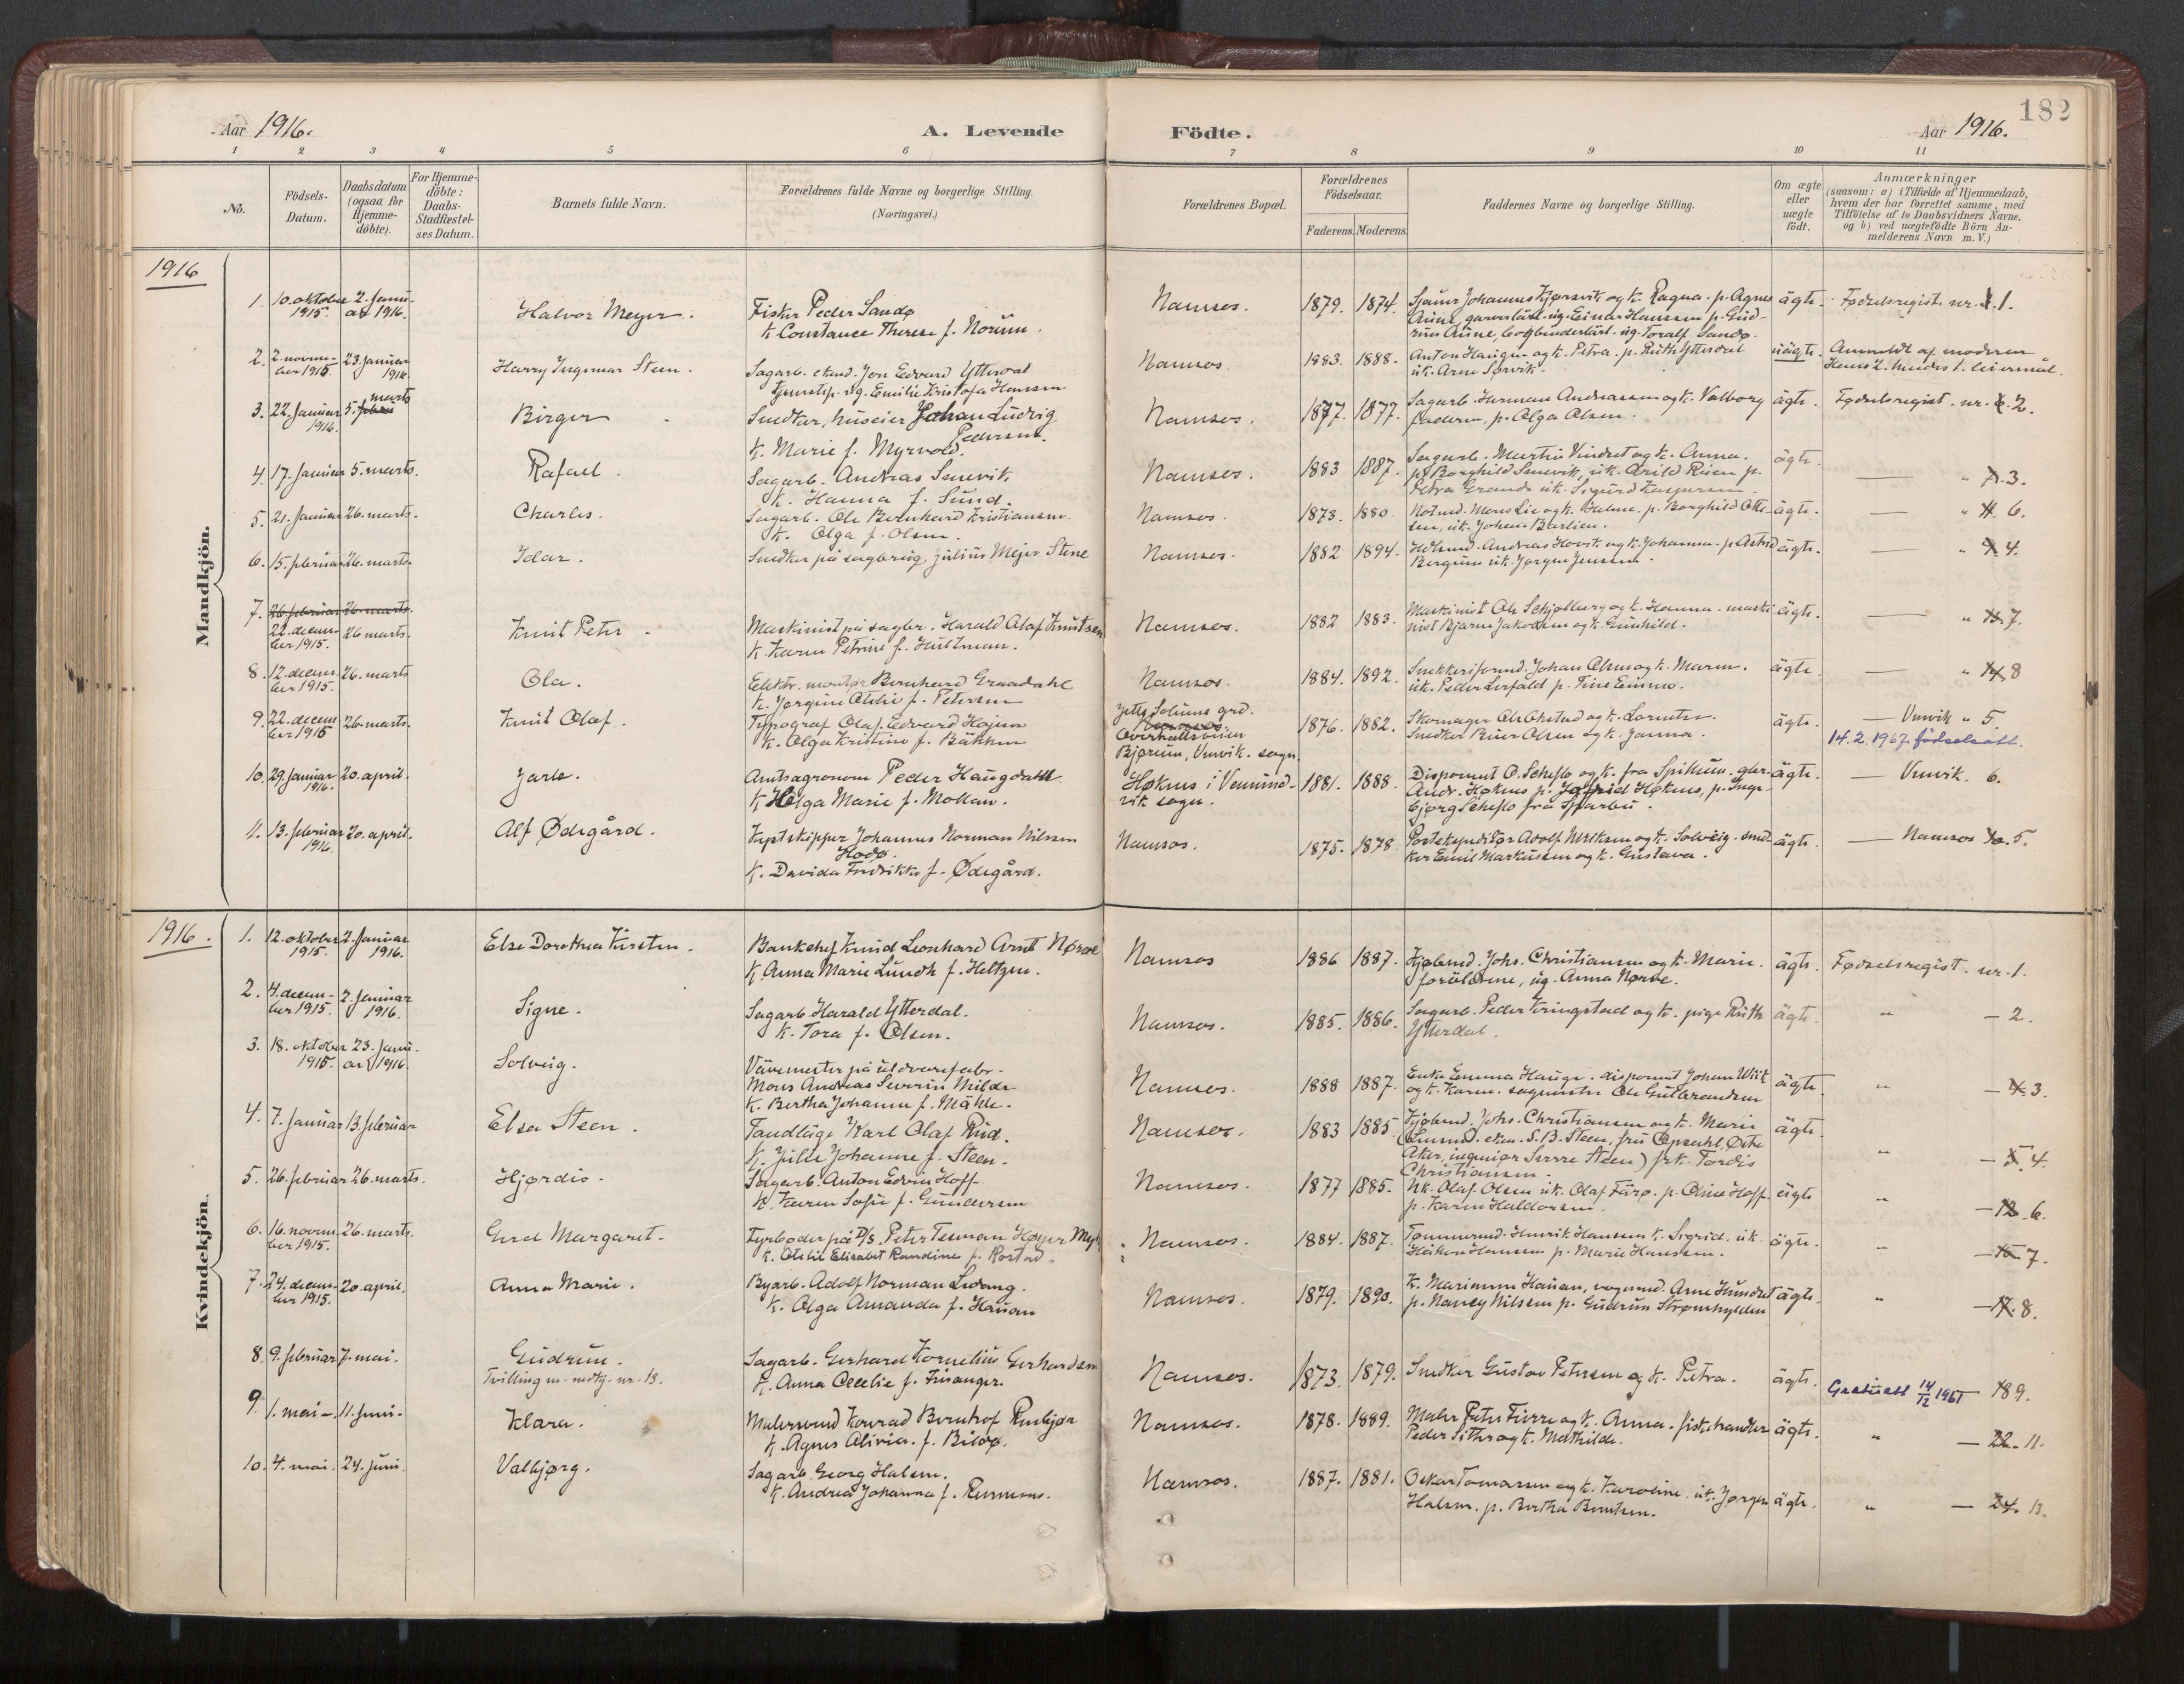 182
Aar 1916.
A. Levende
Födte.
Aar 1916.
1 2 3 4 5 6 7 8 9 10 11
No.
Födsels-
Datum.
Daabsdatum
(ogsaa for
Hjemme-
döbte).
For Hjemme-
döbte:
Daabs-
Stadfæstel-
ses Datum.
Barnets fulde Navn.
Forældrenes fulde Navne og borgerlige Stilling.
(Næringsvei.)
Forældrenes Bopæl.
Forældrenes
Födselsaar.
Faderens. Moderens.
Faddernes Navne og borgerlige Stilling.
Om ægte
eller
uægte
födt.
Anmærkninger
(saasom: a) i Tilfælde af Hjemmedaab,
hvem der har forrettet samme, med
Tilföielse af to Daabsvidners Navne.
og b) ved uægtefödte Börn An-
melderens Navn m. V.)
1916
Mandkjön.
1. 10. oktober 1915. 2. Janu-
ar 1916.
Halvor Meyer.
Fisker Peder Sandø
k. Constance Therese f. Norum.
Namsos. 1879. 1874.
Johannes Kjørsvik og k. Ragna. p. Agnes
Aune, Einar Hanssen p. Gud-
run Aune, Toralf Sandø.
ägte. Fødselsregist. nr. 1.
2. 2. novem-
ber 1915 23. januar
1916.
Harry Ingemar Steen.
Sagarb. Jon Edvard Ytterdal
Emilie Kristofa Hansen
Namsos. 1883. 1888.
Anton Haugen og k. Petra. p. Ruth Ytterdal
uk. Arne Sørvik.
uägte. Anmeldt af moderen
Hans 2. hendes 1. leiermål.
3. 22. Januar
1916. 5. marts
Birger
Snedker, huseier Johan Ludvig
Pedersen.
k. Marie f. Myrvold.
Namsos. 1877. 1877.
Sagarb. Herman Andreassen og k. Valborg
faderen, p. Olga Olsen.
ägte. Fødselsregist. nr. 2.
4. 17. Januar 5. marts.
Rafael.
Sagarb. Andreas Smevik
k. Hanna f. Sund.
Namsos. 1883 1887.
Sagarb. Martin Vindset og k. Anna.
p. Borghild Smevik, uk. Arild Røen p.
Petra Grande uk. Sigurd Kaspersen.
ägte. — " 7. 3.
5. 21. Januar 26. marts.
Charles.
Sagarb. Ole Bernhard Kristiansen.
k. Olga f. Olsen.
Namsos. 1873. 1880.
Mons Lie og k. Helene. p. Borghild Ott-
sen, uk. Johan Barlien.
ägte. — " 11. 6.
6. 15. februar 26. marts.
Idar.
Snedker på sagbrug, Julius Mejer Stene
Namsos. 1882 1894.
Andreas Hovik og k. Johanna. p. Astrid
Bergum uk. Jørgen Jensen.
ägte. — " 9. 4.
7. 26. februar 26. marts.
22. decem-
ber 1915. 26. marts.
Knut Peter.
Maskinist på sagbr. Harald Olaf Knutsen
k. Karen Petrine f. Hultman.
Namsos. 1882 1883.
Maskinist Ole Schjølberg og k. Hanna. maski-
nist Bjarne Jakobsen og k. Gunhild.
ägte. — " 13. 7.
8. 12. decem-
ber 1915. 26. marts
Ola.
Elektr. montør Bernhard Graadahl
k. Jørgine Otelie f. Petersen
Namsos. 1884. 1892.
Snekkerformd. Johan Olsen og k. Maren.
uk. Peder Lerfald p. Tine Einmo.
ägte. — " 14. 8
9. 22. decem
ber 1915 26. marts.
Knut Olaf.
Typograf Olaf Edvard Hojem
k. Olga Kristine f. Bakken
Overhallsveien
Bjørum, Vemvik. sogn.
1876. 1882.
Skomager Ole Okstad og k. Lorentse.
Snedker Peter Olsen og k. Janna.
ägte. — Vmvik " 5.
14. 2. 1967. fødselsatt.
10. 29. Januar
1916. 20. april.
Jarle.
Amtsagronom Peder Haugdahl
k. Helga Marie f. Mollan.
Høknes i Vemund-
vik sogn.
1881. 1888.
Disponent O. Scheflo og k. fra Spillum.
Andr. Høknes p. Høknes, p. Inge-
bjørg Scheflo fra Sparbu.
ägte. — Vmvik. 6.
11. 13. februar
1916. 20. april.
Alf Ødegård.
Johannes Norman Nilssen
Hodø.
k. Davida Fredrikke f. Ødegård.
Namsos. 1875. 1878.
Postekspeditør Adolf og k. Solveig. sned-
ker Emil Markussen og k. Gustava.
ägte. — Namsos 10. 5.
1916.
Kvindekjön.
1. 12. oktober
1915. 2. Januar
1916.
Else Dorothea Kirsten.
Bankchef Knud Leonhard Arnt Nørve
k. Anna Marie Lundh f. Heltzen.
Namsos 1886 1887.
Kjøbmd. Johs. Christiansen og k. Marie.
foräldrene, ug. Anna Nørve.
ägte. Fødselsregist. nr. 1.
2. 4. decem-
ber 1915. 2. Januar
1916.
Signe.
Sagarb. Harald Ytterdal.
k. Tora f. Olsen.
Namsos. 1885. 1886.
Sagarb. Peder Kringstad og k. pige Ruth
Ytterdal.
ägte. " — 2.
3. 18. oktober
1915. 23. Janu-
ar 1916.
Solveig.
Vävemester på uldvarefabr.
Mons Andreas Severin Milde
k. Bertha Johanne f. Mähle.
Namsos. 1888 1887.
Enke Emma Hauge. disponent Johan Wiik
og k. Karen. sagmester Ole Gulbrandsen
ägte. " — 4. 3.
4. 7. Januar 13. februar
Elsa Steen.
Tandläge Karl Olaf Rud.
k. Julie Johanne f. Steen.
Namsos. 1883 1885
Kjøbmd. Johs. Christiansen og k. Marie
S. B. Steen, fru Opsahl Østre
Aker, ingeniør Sverre Steen) frk. Tordis
Christiansen.
ägte. " — 5. 4.
5. 26. februar 26. marts.
Hjørdis.
Sagarb. Anton Edvin Hoff
k. Karen Sofie f. Gundersen
Namsos. 1877 1885.
Uk. Olaf Olsen uk. Olaf Färø. p. Oline Hoff
p. Karen Haldorsen.
ägte " — 12. 6.
6. 16. novem-
ber 1915. 26. marts.
Gerd Margaret.
Fyrbøder på D/s. Peter Tesman Høyer
k. Otelie Elisabet Randine f. Rostad.
Namsos. 1884. 1887.
Tømmermd. Henrik Hansen k. Sigrid. uk.
Håkon Hansen p. Marie Hanssen.
ägte. " — 15 7.
7. 24. decem-
ber 1915. 20. april.
Anna Marie.
Byarb. Adolf Norman Ledang.
k. Olga Amanda f. Hauan
Namsos. 1879. 1890.
k. Marianne Hauan, vognmd. Arne Hundset
p. Nancy Nilssen p. Gudrun Strømhylden
ägte. " — 17. 8.
8. 9. februar 7. mai.
Gudrun.
Tvilling m. mdkj. nr. 13.
Sagarb. Gerhard Kornelius Gerhardsen
k. Anna Cecelie f. Finanger.
Namsos. 1873. 1879.
Snedker Gustav Petersen og k. Petra.
ägte. 14/12 1961 — 18 9.
9. 1. mai. 11. juni.
Klara.
Malersvend Konrad Berntof Rembjør
k. Agnes Alivia. f. Bilø.
Namsos. 1878. 1889.
Maler Peter Fierre og k. Anna. fiskehandler
Peder Sitter og k. Mathilde.
ägte. " — 22. 11.
10. 4. mai. 24. juni.
Valbjørg.
Sagarb. Georg Halsen.
k. Andrea Johanna f.
Namsos. 1887. 1881.
Oskar Tomassen og k. Karoline. uk. Jørgen
Halsen. p. Bertha Berntsen.
ägte. " — 24. 13.